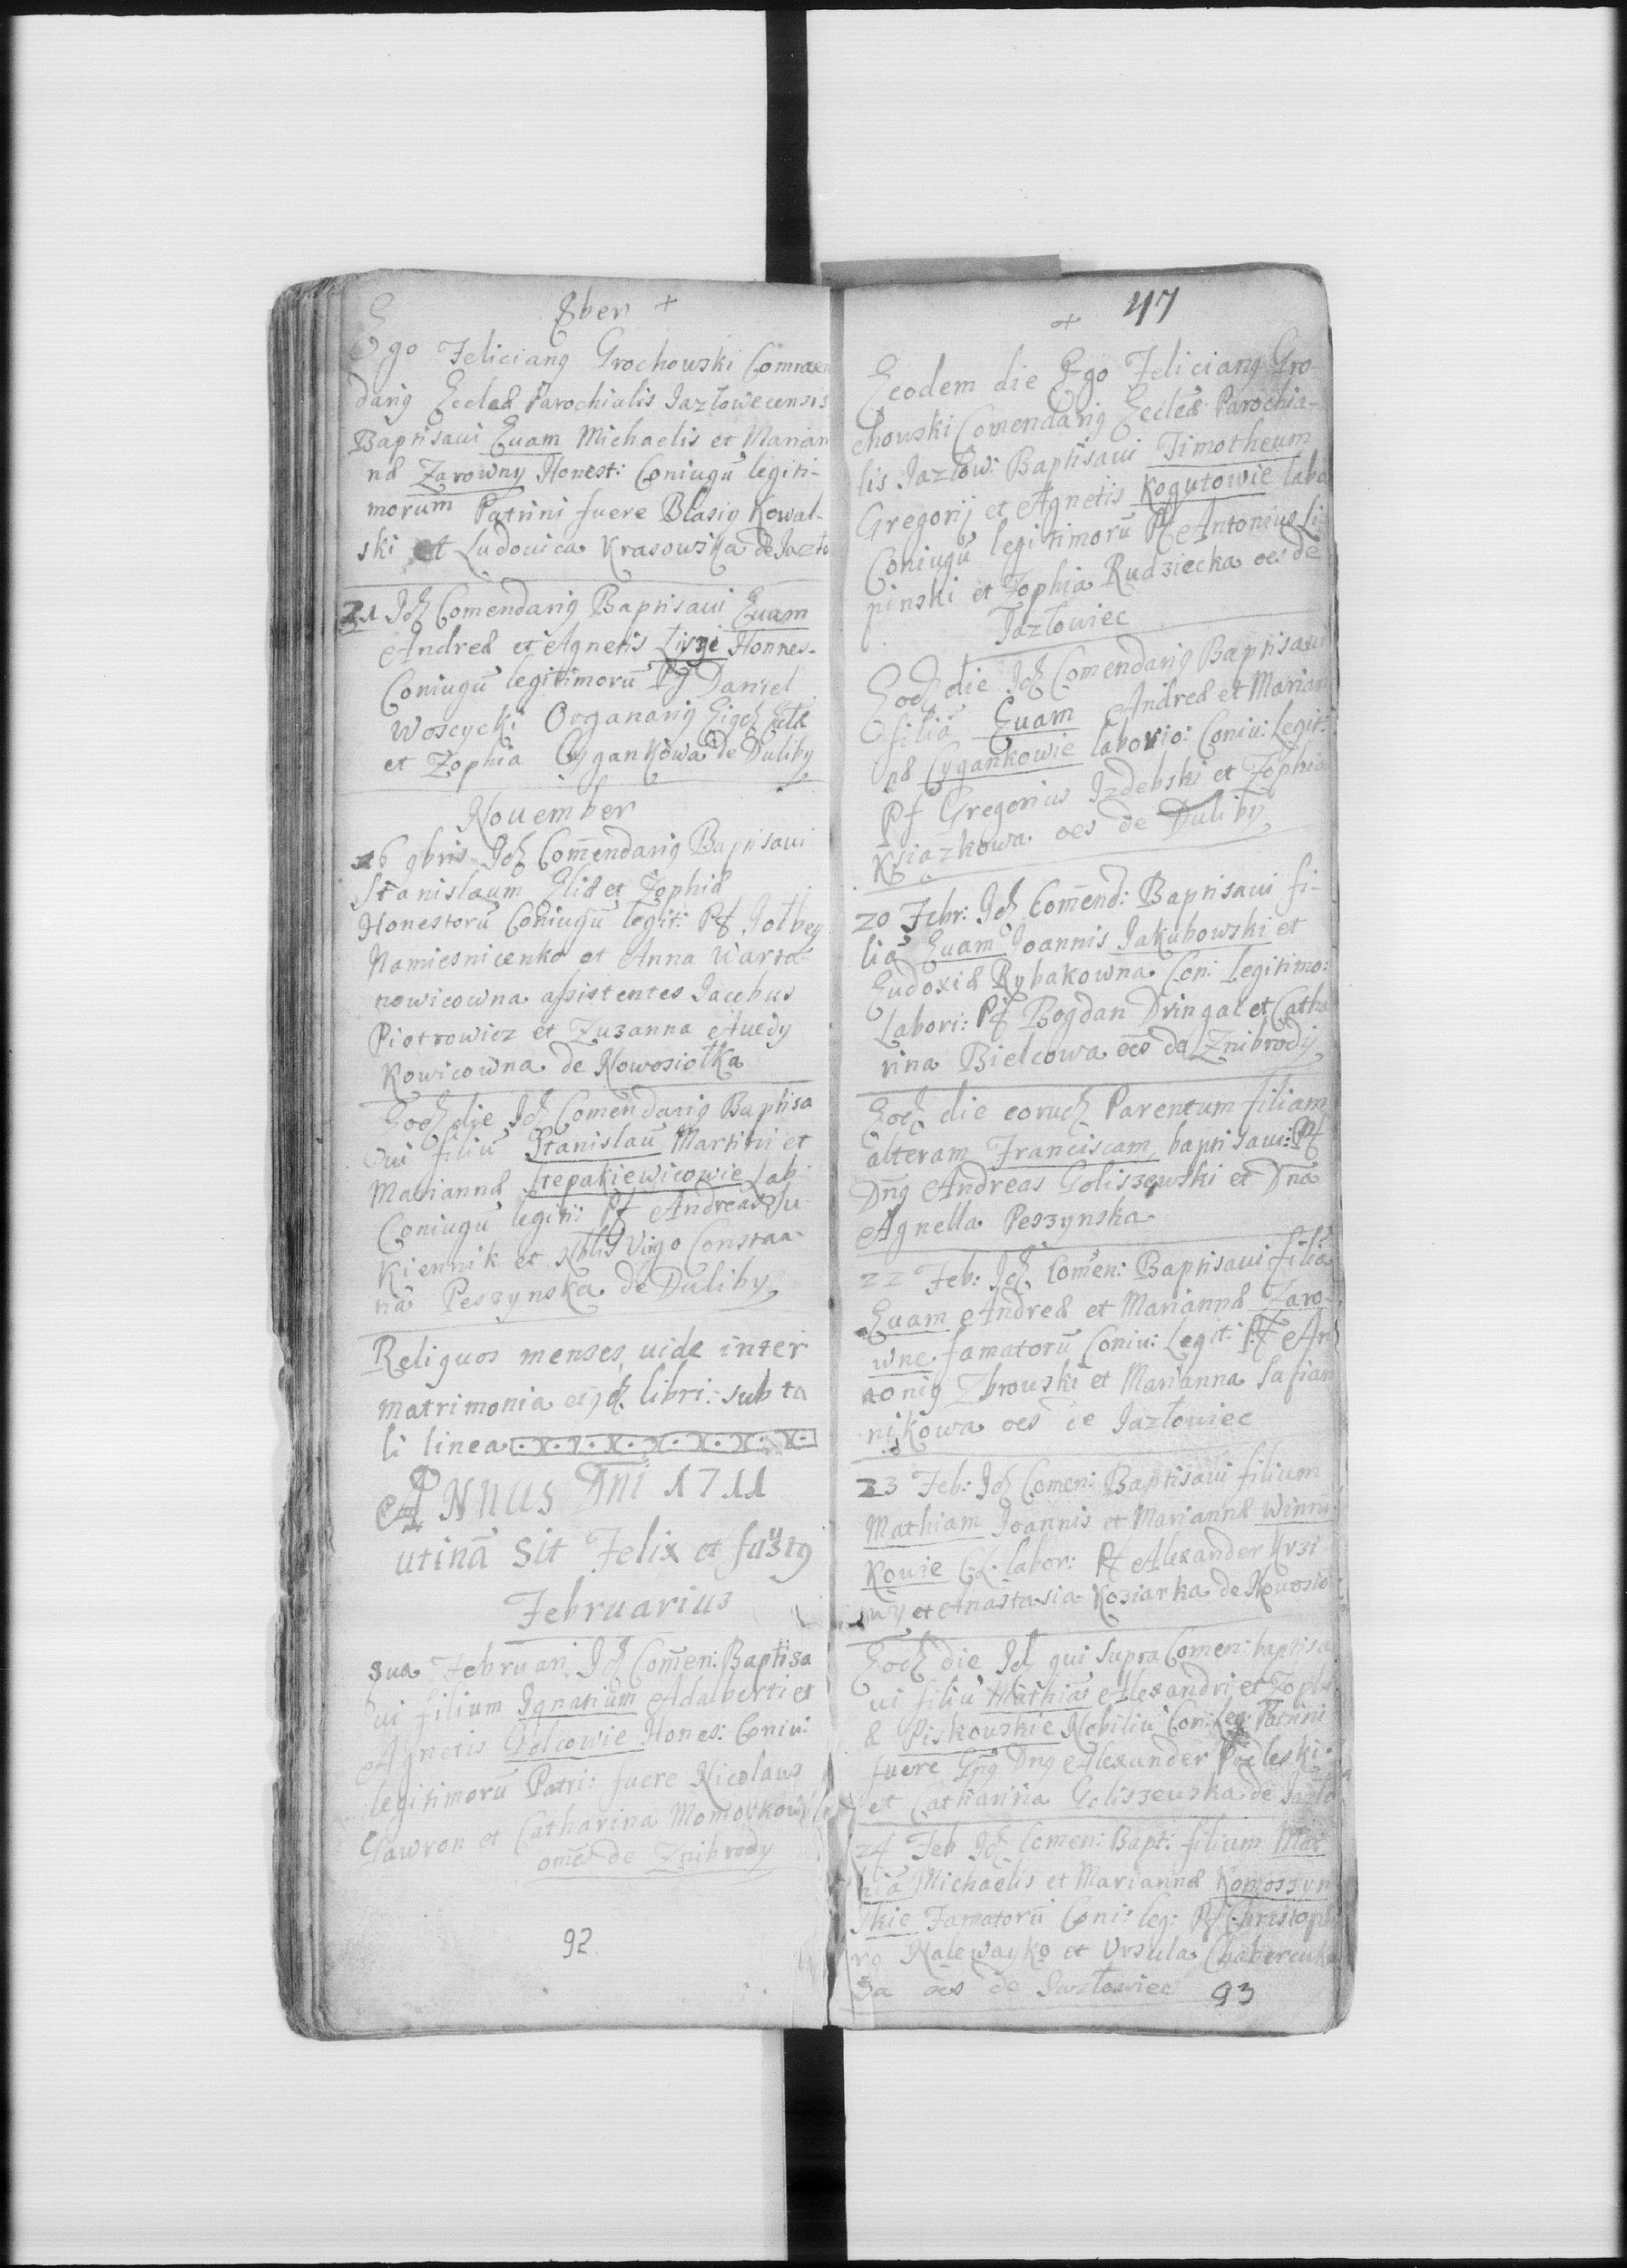 8ber +
Ego Felicianꝯ Grochowski Commen
dariꝯ Eccleæ Parochialis Jazłowecensis
Baptisaui Euam Michaelis et Marian
næ Zarowny Honest: Coniugū legiti-
morum Patrini fuere Blasiꝯ Kowal-
ski et Ludouica Krasowska de Jazło
21 Id Comendariꝯ Baptisaui Euam
Andreæ et Agnetis Honnes.
Coniugū legitimorū Daniel
Woscycki Organariꝯ
et Zophia Cygankowa de Duliby
Nouember
16 9bris Id Comendariꝯ Baptisaui
Stanislaum Eliæ et Zophiæ
Honestorū Coniugū legit: Pf
Namiesnicenko et Anna Warta-
nowicowna assistentes Jacobus
Piotrowicz et Zuzanna Awedy
kowicowna de Nowosiołka
Eod die Id Comendariꝯ Baptisa
ui filiū Stanislaū Martini et
Mariannæ Stepakiewicowie Lab:
Coniugū legiti: Pf Andreas Su
kiennik et Nblis Virgo Constan-
na Peszynska de Duliby
Reliquos menses uide inter
matrimonia eiꝯd libri: sub ta
li linea
Annus Dni 1711
utinā sit Felix et faustꝯ
Februarius
3ua Februari Id Comen: Baptisa
ui filium Ignatium Adalberti et
Agnetis Golcowie Hones: Coniu:
legitimorū Patri: fuere Nicolaus
Gawron et Catharina
omē de Znibrody
92
47
+
Eeodem die Ego Felicianꝯ Gro-
chowski Comendariꝯ Eccleæ Parochia-
lis Jazłow: Baptisaui Timotheum
Gregorij et Agnetis Kogutowie labo
Coniugū legitimorū Pf Antonius Li-
pinski et Zophia Rudziecka oes de
Jazłowiec
Eod die Id Comendariꝯ Baptisaui
filiā Euam Andreæ et Marian
næ Cygankowie laborio: Coniu: legit:
Pf Gregorius Izdebski et Zophia
Ksiazkowa oes de Duliby
20 Febr: Id Comend: Baptisaui fi-
liā Euam Joannis Jakubowski et
Eudoxiæ Rybakowna Con: legitimo:
labori: Pf Bogdan Dringal et Catha
rina Bielcowa oes de Znibrody
Eod die eorud Parentum filiam
alteram Franciscam baptisaui: Pf
Dnꝯ Andreas Goliszewski et Dna
Agnella Peszynska
22 Feb: Id Comen: Baptisaui filiā
Euam Andreæ et Mariannæ Zaro-
wne famatorū Coniu: Legit: Pf An
toniꝯ Zbrowski et Marianna Safian
nikowa oes de Jazłowiec
23 Feb: Id Comen: Baptisaui filium
Mathiam Joannis et Mariannæ Winnū
kowie C: L: labor: Pf Alexander Krzi-
wy et Anastasia Koziarka de Nowosioł
Eod die Id qui supra Comen: baptisa
ui filiū Mathiā Alexandri et Zoph
æ Piskowskie Nobiliū Con: Leg: Patrini
fuere Gnꝯ Dnꝯ Alexander Podleski
et Catharina Goliszewska de Jazło
24 Feb Id Comen: Bapt: filium Mat
hiā Michaelis et Mariannæ Komoszyn
skie Famatorū Coni: leg: Pf Christoph
rꝯ Nalewayko et Vrsula
oes de Jazłowiec
93